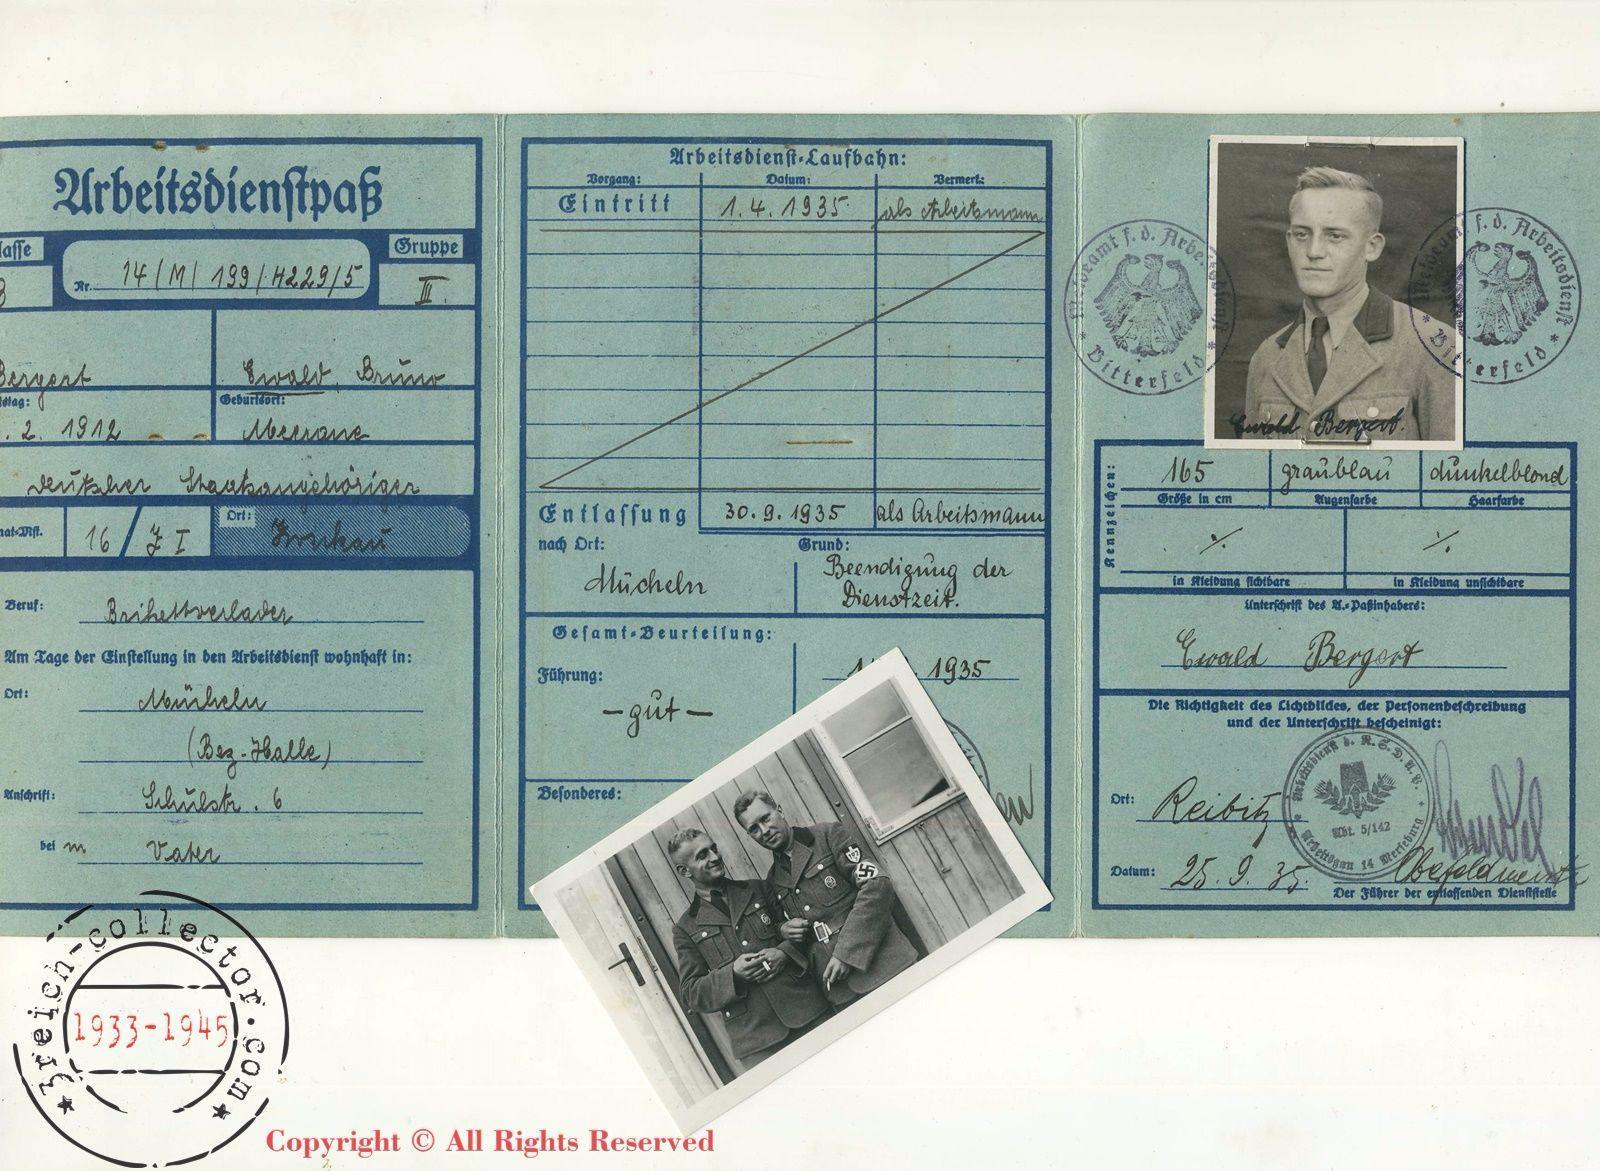 Arbeitsdienstpaß
Gruppe
Nr. 14/M/199/4229/5
III.
Bergert
Ewald, Bruno
Geburtsort:
2. 1912
Meerane
Deutscher Staatsangehöriger
16 / J I
Ort:
Beruf:
Brikettverlader
Am Tage der Einstellung in den Arbeitsdienst wohnhaft in:
Ort:
Mücheln
(Bez-Halle)
Anschrift:
Schulstr. 6
bei
Vater
Arbeitsdienst-Laufbahn:
Vorgang:
Datum:
Vermerk:
Eintritt
1.4.1935
als Arbeitsmann
Entlassung
30.9.1935
als Arbeitsmann
nach Ort:
Grund:
Mücheln
Beendigung der
Dienstzeit.
Gesamt-Beurteilung:
Führung:
1935
-gut-
Besonderes:
Meldeamt f. d. Arbeitsdienst
* Bitterfeld *
Meldeamt f. d. Arbeitsdienst
* Bitterfeld *
Ewald Bergert.
Kennzeichen:
165
graublau
dunkelblond
Größe in cm
Augenfarbe
Haarfarbe
in Kleidung sichtbare
in Kleidung unsichtbare
Unterschrift des A.-Paßinhabers:
Ewald Bergert
Die Richtigkeit des Lichtbildes, der Personenbeschreibung
und der Unterschrift bescheinigt:
Arbeitsdienst d. N.S.D.A.P.
Abt. 5/142
Arbeitsgau 14 Merseburg
Ort:
Reibitz
Datum:
25.9.35.
Oberfeldmeister
Der Führer der entlassenden Dienststelle
3reich-collector.com
1933-1945
Copyright © All Rights Reserved